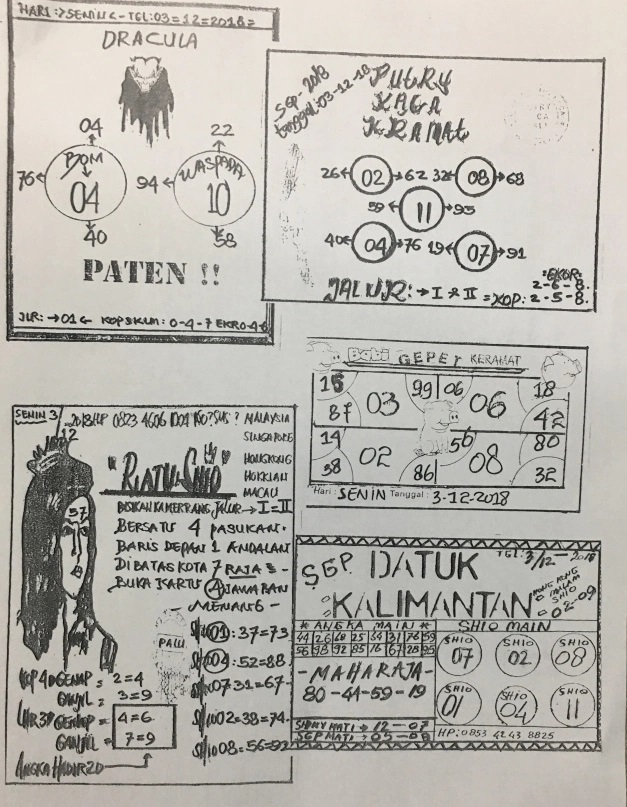 HARI :> SENIN < - TGL : 03 = 12 = 2018 =
DRACULA
04
22
76
BOM
04
94
WASPADA
10
40
58
PATEN !!
JLR : → 01 ← KOPSKUM : 0 - 4 - 7 EKRO - 4 - 6
SGP - 2018
tanggal : 03-12-18
PUTRY
KACA
KRAMAT
26 02 62
32 08 68
59 11 95
40 04 76
19 07 91
JALUR : → I & II
= EKOR :
2 - 6 - 8.
= KOP : 2 - 5 - 8.
Babi GEPET KERAMAT
15 99 06 18
03 06
87 42
14 56 80
02 08
38 86 32
Hari : SENIN Tanggal : 3-12-2018
SENIN 3/12
2018 HP 0823 4606
MALAYSIA
SINGAPORE
HONGKONG
HOKKIAN
MACAU
"RATU SHIO"
57
JALUR → I = II
BERSATU 4 PASUKAN.
BARIS DEPAN 1 ANDALAN
DIBATAS KOTA 7 RAJA 8 -
BUKA KARTU A JAWARAN
MENANG -
PAUL
SHIO 01 : 37 = 73
SHIO 04 : 52 = 88
SHIO 07 31 = 67
SHIO 02 = 38 = 74
SHIO 08 = 56 = 92
KOP 4D GENAP = 2 = 4
GANJIL = 3 = 9
GENAP = 4 = 6
GANJIL = 7 = 9
ANGKA HADIR 2D
SGP. DATUK
TGL : 3/12 - 2018
KALIMANTAN
HONG KONG
MALAM
SHIO
02-09
* ANGKA MAIN *
SHIO MAIN
44 26 68 25 64 31 76 59
56 98 92 85 16 67 28 95
- MAHARAJA -
80 - 44 - 59 - 19
SHIO 07
SHIO 02
SHIO 08
SHIO 01
SHIO 04
SHIO 11
SIDNY MATI → 12 - 07
SGP MATI → 05 - 08
HP : 0853 4243 8825